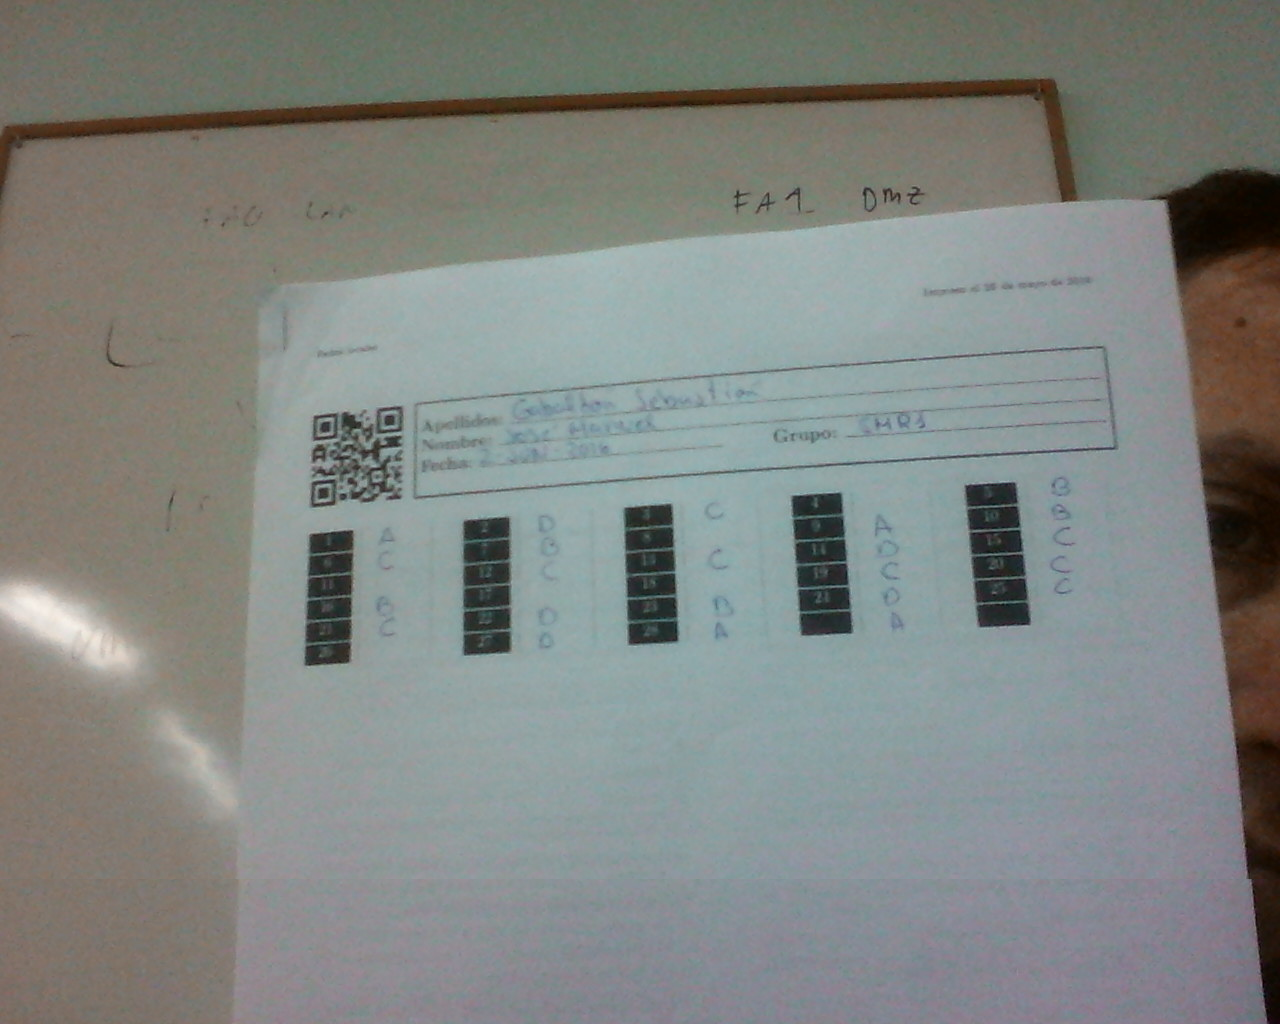 FA1 DMZ
Impreso el de mayo de
Apellidos: Sebastián
Nombre: José Manuel
Fecha: 2 - JUN - 2016 Grupo: SMR1
1 A 2 D 3 C 4 5 B
6 C 7 B 8 9 A 10 B
11 12 C 13 C 14 D 15 C
16 B 17 18 19 C 20 C
21 C 22 D 23 B 24 D 25 C
26 27 D 28 A A